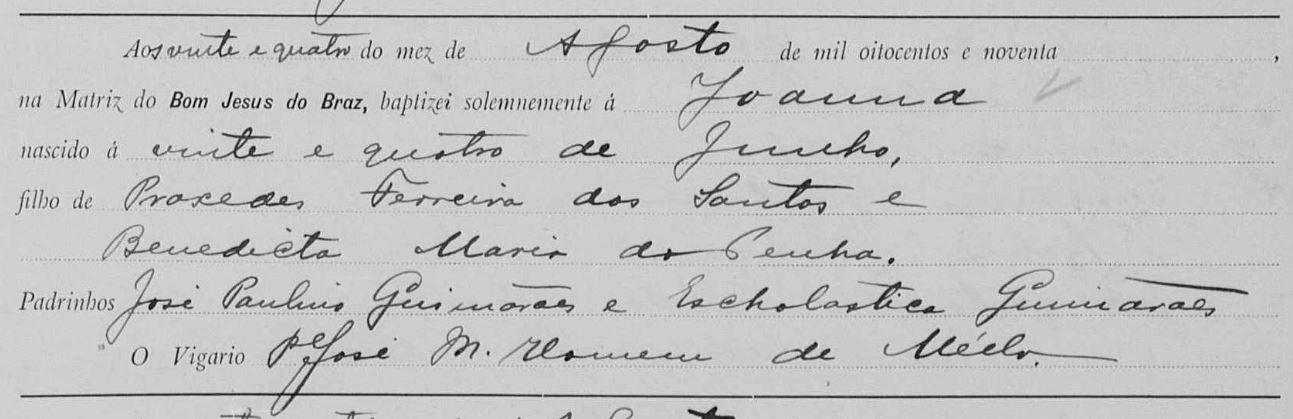 Aos vinte e quatro do mez de Agosto de mil oitocentos e noventa ,
na Matriz do Bom Jesus do Braz, baptizei solemnemente á Joanna
nascido á vinte e quatro de Junho,
filho de Praxedes Ferreira dos Santos e
Benedicta Maria da Penha.
Padrinhos José Paulino Guimarães e Escholastica Guimarães
O Vigario Pe José M. Homem de Méllo.